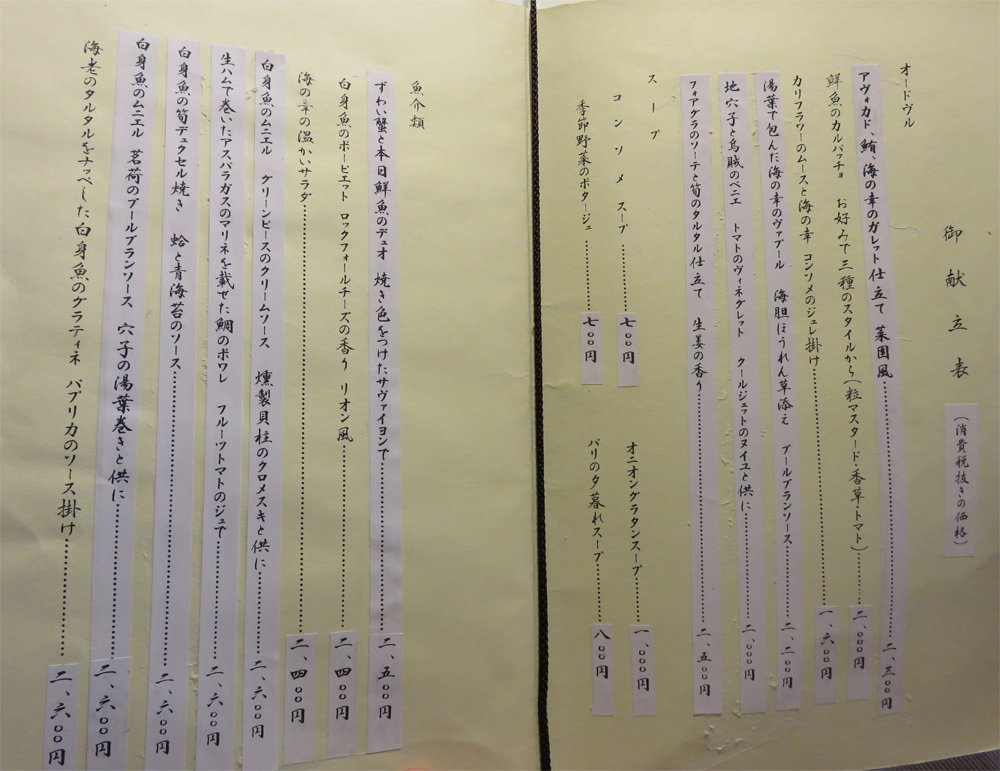 御献立表
(消費税抜きの価格)
オードヴル
アヴォカド、鮪、海の幸のガレット仕立て 菜園風……二、三〇〇円
鮮魚のカルパッチョ お好みで三種のスタイルから(粒マスタード・香草・トマト)……二、〇〇〇円
カリフラワーのムースと海の幸 コンソメのジュレ掛け……一、六〇〇円
湯葉で包んだ海の幸のヴァプール 海胆ほうれん草添え ブールブランソース……二、二〇〇円
地穴子と烏賊のベニエ トマトのヴィネグレット クールジェットのヌイユと供に……二、〇〇〇円
フォアグラのソーテと筍のタルタル仕立て 生姜の香り……二、五〇〇円
スープ
コンソメスープ……七〇〇円
オニオングラタンスープ……一、〇〇〇円
季節野菜のポタージュ……七〇〇円
パリの夕暮れスープ……八〇〇円
魚介類
ずわい蟹と本日鮮魚のデュオ 焼き色をつけたサヴァイヨンで……二、五〇〇円
白身魚のポーピエット ロックフォールチーズの香り リオン風……二、四〇〇円
海の幸の温かいサラダ……二、四〇〇円
白身魚のムニエル グリーンピースのクリームソース 燻製貝柱のクロメスキと供に……二、六〇〇円
生ハムで巻いたアスパラガスのマリネを載せた鯛のポワレ フルーツトマトのジュで……二、六〇〇円
白身魚の筍デュクセル焼き 蛤と青海苔のソース……二、六〇〇円
白身魚のムニエル 茗荷のブールブランソース 穴子の湯葉巻きと供に……二、六〇〇円
海老のタルタルをナッペした白身魚のグラティネ パプリカのソース掛け……二、六〇〇円